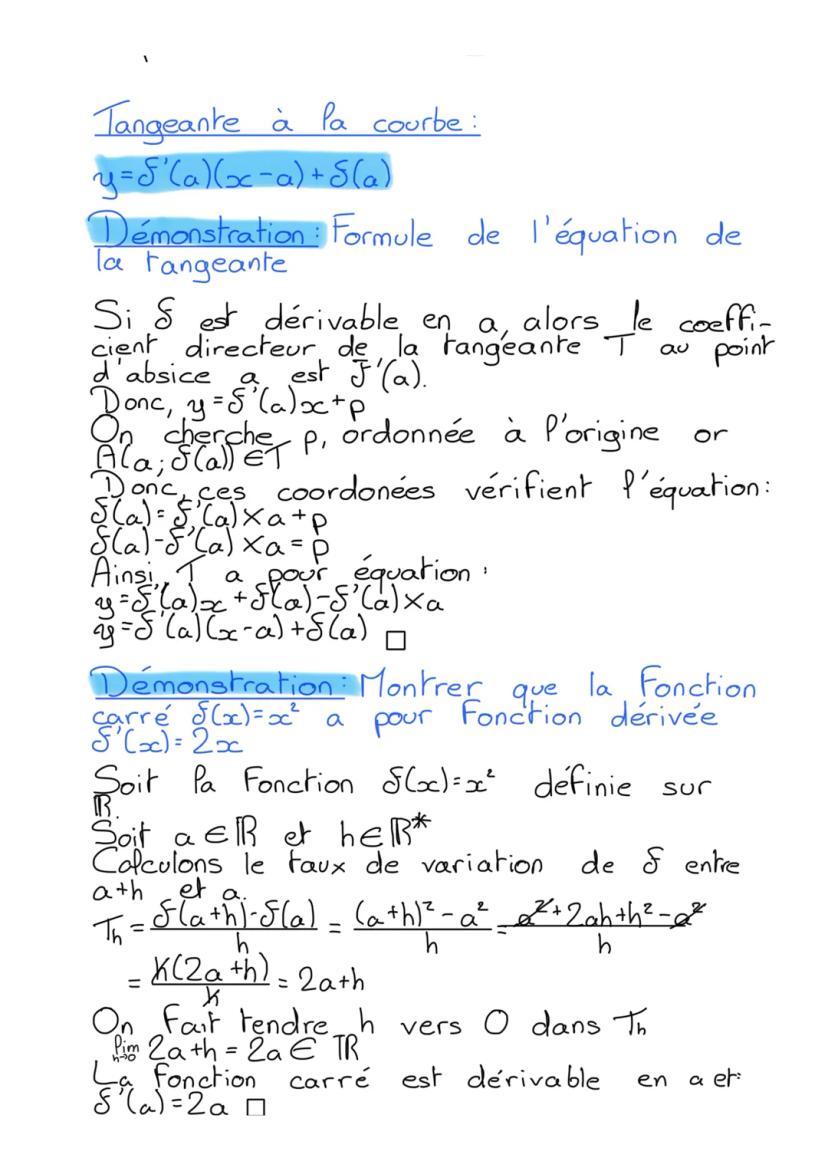 Tangeante à la courbe :
y=f'(a)(x-a)+f(a)
Démonstration : Formule de l'équation de
la tangeante
Si f est dérivable en a, alors le coeffi-
cient directeur de la tangeante T au point
d'absice a est f'(a).
Donc, y=f'(a)x+p
On cherche p, ordonnée à l'origine or
A(a; f(a)) ∈ T
Donc, ces coordonées vérifient l'équation :
f(a)=f'(a)×a+p
f(a)-f'(a)×a=p
Ainsi, T a pour équation :
y=f'(a)x+f(a)-f'(a)×a
y=f'(a)(x-a)+f(a) □
Démonstration : Montrer que la Fonction
carré f(x)=x² a pour Fonction dérivée
f'(x)=2x
Soit la Fonction f(x)=x² définie sur
ℝ.
Soit a∈ℝ et h∈ℝ*
Calculons le taux de variation de f entre
a+h et a.
Th = (f(a+h)-f(a))/h = ((a+h)²-a²)/h = (a²+2ah+h²-a²)/h
= h(2a+h)/h = 2a+h
On fait tendre h vers 0 dans Th
lim h→0 2a+h = 2a ∈ ℝ
La fonction carré est dérivable en a et
f'(a)=2a □